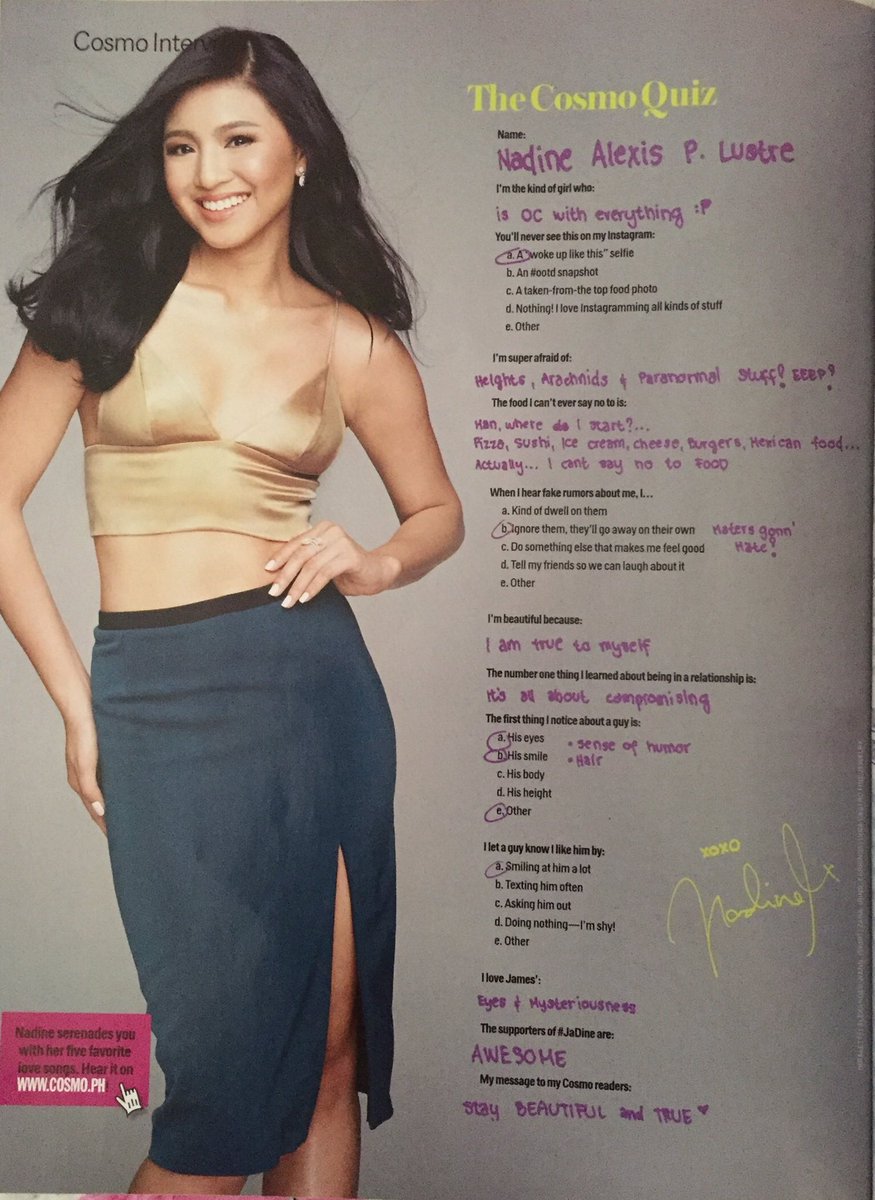 Cosmo Interv
The Cosmo Quiz
Name:
Nadine Alexis P. Lustre
I'm the kind of girl who:
is OC with everything :P
You'll never see this on my Instagram:
a. A "woke up like this" selfie
b. An #ootd snapshot
c. A taken-from-the top food photo
d. Nothing! I love Instagramming all kinds of stuff
e. Other
I'm super afraid of:
Heights, Arachnids & Paranormal stuff! EEEP!
The food I can't ever say no to is:
Man, where do I start?...
Pizza, Sushi, Ice cream, cheese, Burgers, Mexican food...
Actually... I cant say no to FOOD
When I hear fake rumors about me, I...
a. Kind of dwell on them
b. Ignore them, they'll go away on their own Haters gonn'
c. Do something else that makes me feel good Hate!
d. Tell my friends so we can laugh about it
e. Other
I'm beautiful because:
I am true to myself
The number one thing I learned about being in a relationship is:
It's all about compromising
The first thing I notice about a guy is:
a. His eyes • sense of humor
b. His smile • Hair
c. His body
d. His height
e. Other
I let a guy know I like him by:
a. Smiling at him a lot
b. Texting him often
c. Asking him out
d. Doing nothing—I'm shy!
e. Other
xoxo
Nadine
I love James':
Eyes & Mysteriousness
The supporters of #JaDine are:
AWESOME
My message to my Cosmo readers:
Stay BEAUTIFUL and TRUE ♥
Nadine serenades you
with her five favorite
love songs. Hear it on
WWW.COSMO.PH